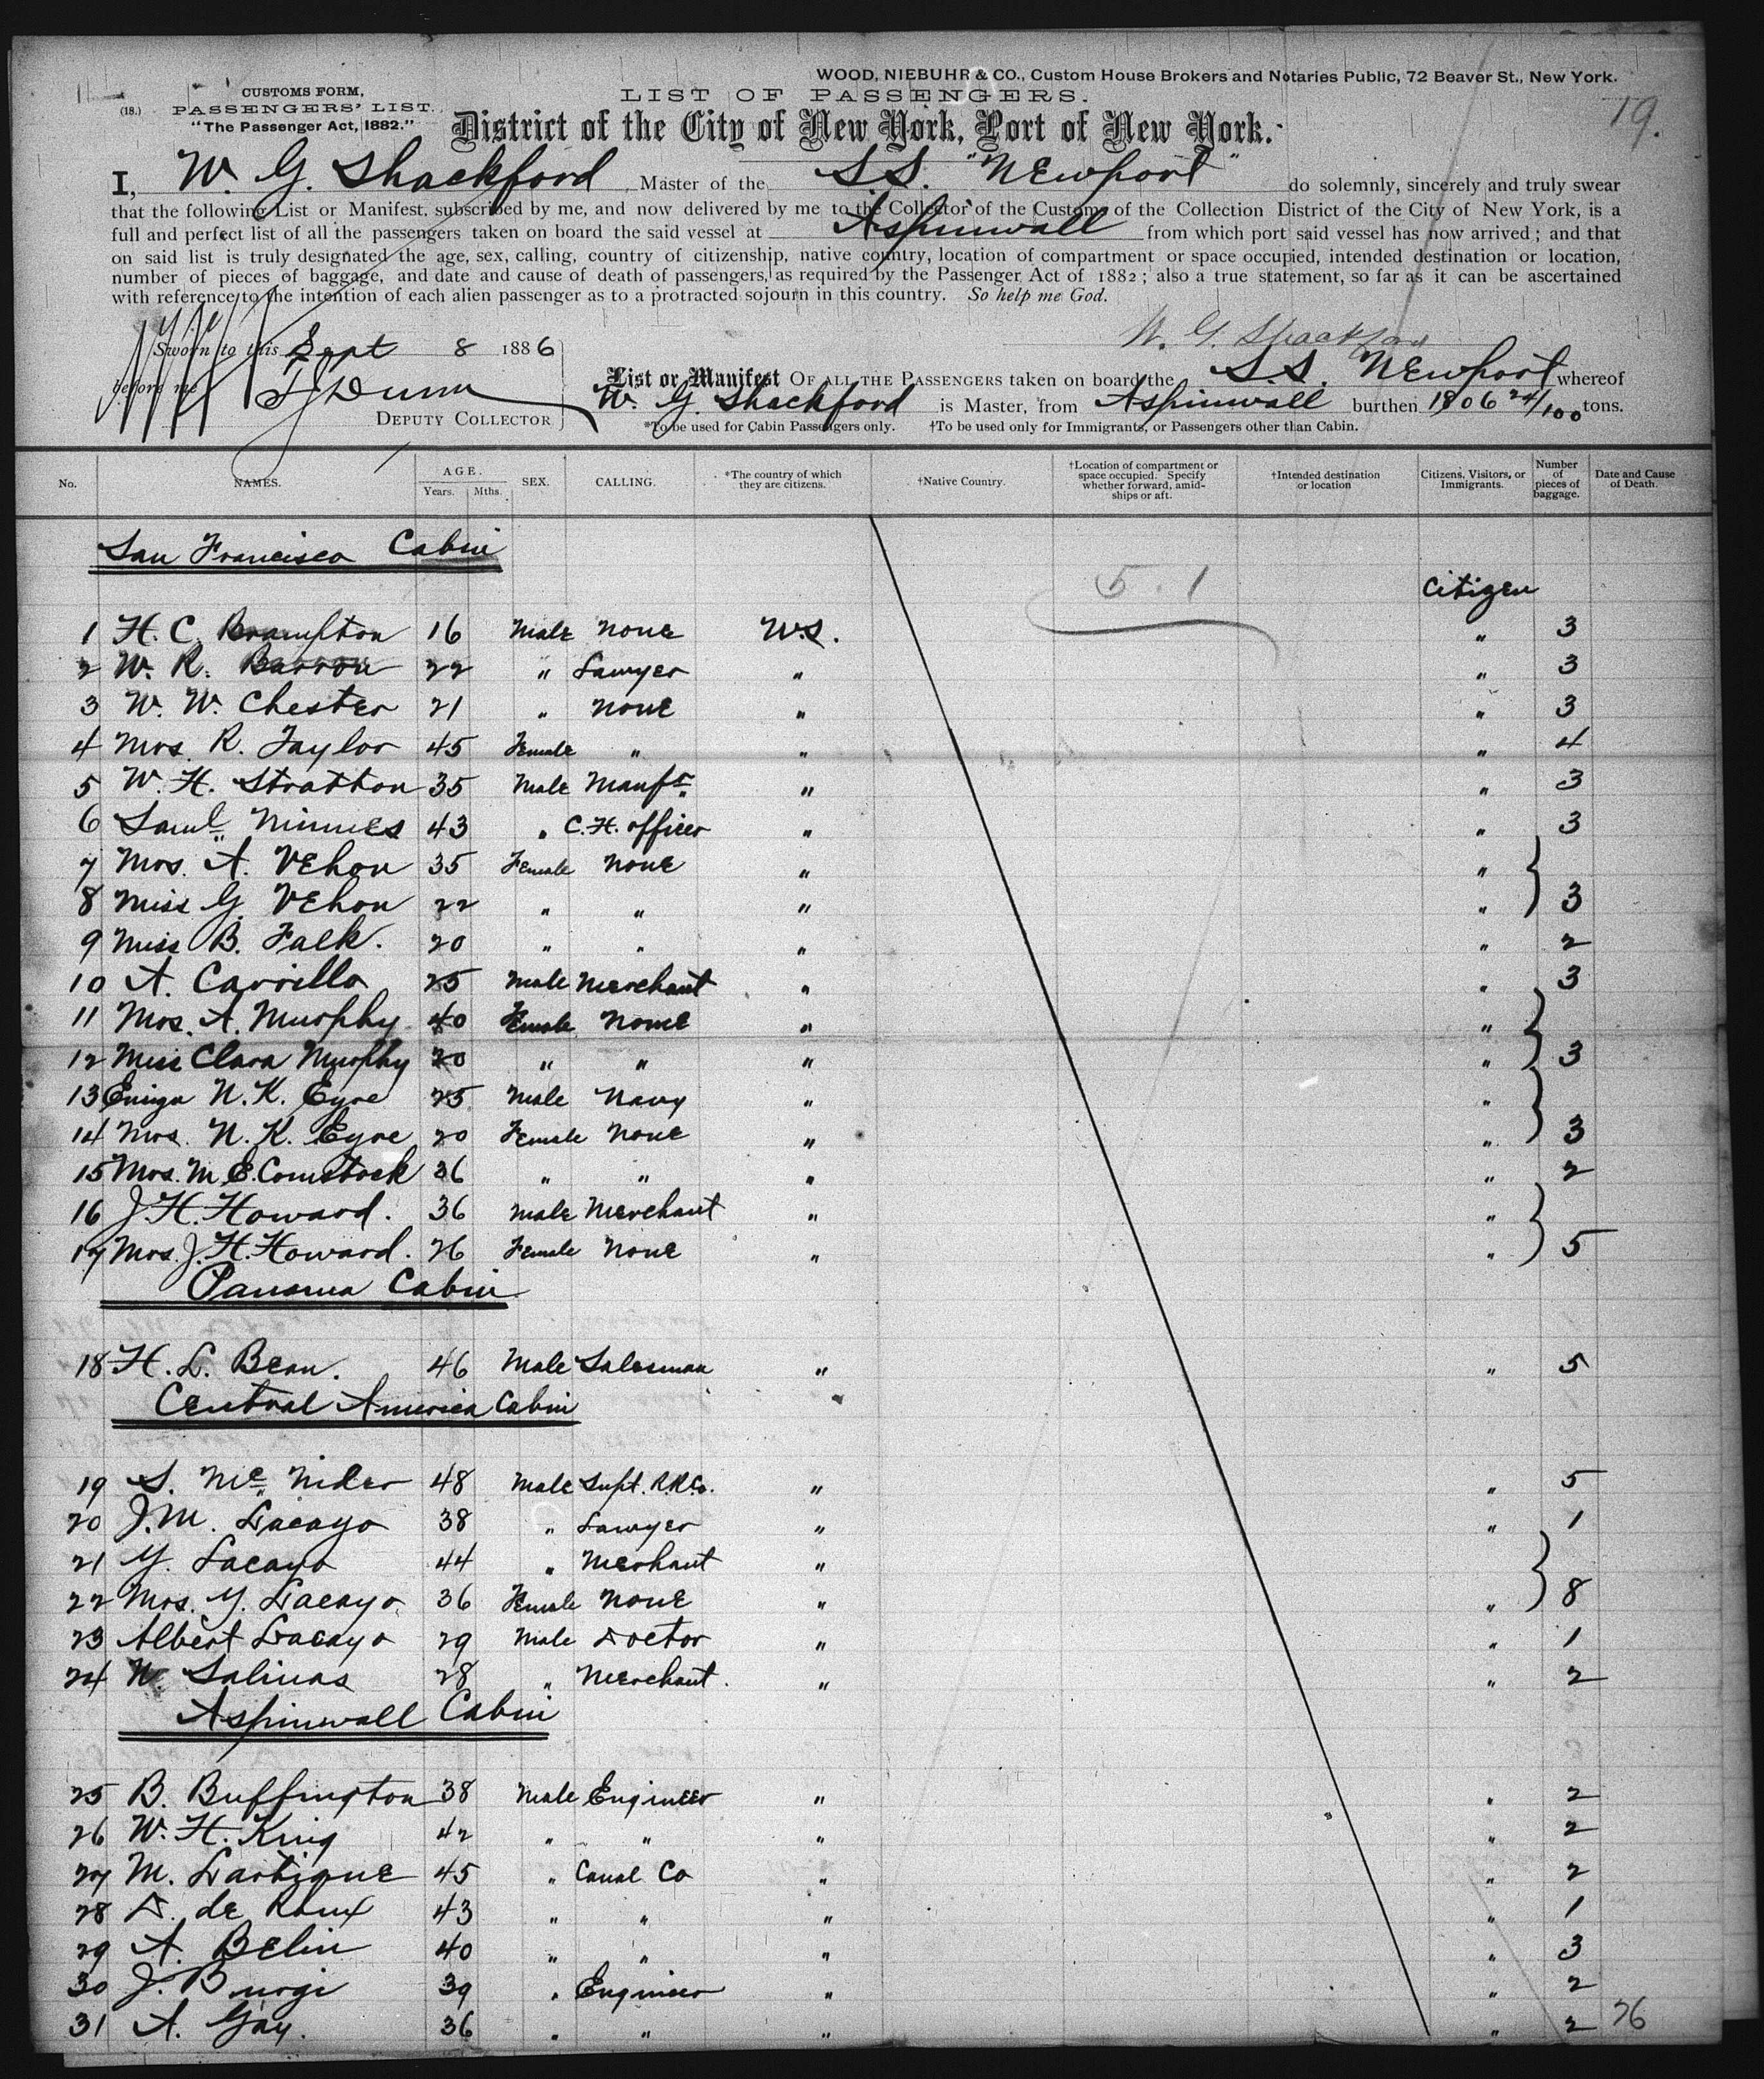 WOOD, NIEBUHR & CO., Custom House Brokers and Notaries Public, 72 Beaver St., New York.
(18.) CUSTOMS FORM,
PASSENGERS' LIST.
"The Passenger Act, 1882."
LIST OF PASSENGERS.
19.
District of the City of New York, Port of New York.
I, W. G. Shackford, Master of the S.S. "Newport" do solemnly, sincerely and truly swear
that the following List or Manifest, subscribed by me, and now delivered by me to the Collector of the Customs of the Collection District of the City of New York, is a
full and perfect list of all the passengers taken on board the said vessel at Aspinwall from which port said vessel has now arrived; and that
on said list is truly designated the age, sex, calling, country of citizenship, native country, location of compartment or space occupied, intended destination or location,
number of pieces of baggage, and date and cause of death of passengers, as required by the Passenger Act of 1882; also a true statement, so far as it can be ascertained
with reference to the intention of each alien passenger as to a protracted sojourn in this country. So help me God.
W. G. Shackford
Sworn to this Sept 8 1886
before me Dunn
DEPUTY COLLECTOR
List or Manifest OF ALL THE PASSENGERS taken on board the S.S. Newport whereof
W. G. Shackford is Master, from Aspinwall burthen 1806 24/100 tons.
*To be used for Cabin Passengers only. †To be used only for Immigrants, or Passengers other than Cabin.
No. NAMES. AGE. Years. Mths. SEX. CALLING. *The country of which they are citizens. †Native Country. †Location of compartment or space occupied. Specify whether forward, amidships or aft. †Intended destination or location Citizens, Visitors, or Immigrants. Number of pieces of baggage. Date and Cause of Death.
San Francisco Cabin
5.1 Citizen
1 H. C. Brampton 16 Male None U.S. " 3
2 W. R. Barron 22 " Lawyer " " 3
3 W. W. Chester 21 " None " " 3
4 Mrs. R. Taylor 45 Female " " " 4
5 W. H. Stratton 35 Male Manufr. " " 3
6 Saml. Nimmes 43 " C.H. officer " " 3
7 Mrs. A. Vehon 35 Female None " "
8 Miss G. Vehon 22 " " " " 3
9 Miss B. Falk. 20 " " " " 2
10 A. Carrillo 25 Male Merchant " " 3
11 Mrs. A. Murphy 40 Female None " "
12 Miss Clara Murphy 20 " " " " 3
13 Ensign N. K. Eyre 25 Male Navy " "
14 Mrs. N. K. Eyre 20 Female None " " 3
15 Mrs. M. E. Comstock 36 " " " " 2
16 J. H. Howard. 36 Male Merchant " "
17 Mrs. J. H. Howard. 26 Female None " " 5
Panama Cabin
18 H. L. Bean. 46 Male Salesman " " 5
Central America Cabin
19 S. Mc Nider 48 Male Supt. R.R.Co. " " 5
20 J. M. Lacayo 38 " Lawyer " " 1
21 Y. Lacayo 44 " Merhant "
22 Mrs. Y. Lacayo 36 Female None " " 8
23 Albert Lacayo 29 Male Doctor " " 1
24 N. Salinas 28 " Merchant. " " 2
Aspinwall Cabin
25 B. Buffington 38 Male Engineer " " 2
26 W. H. King 42 " " " " 2
27 M. Lartigue 45 " Canal Co " " 2
28 D. de Roux 43 " " " " 1
29 A. Belin 40 " " " " 3
30 J. Burgi 39 " Engineer " " 2
31 A. Gay. 36 " " " " 2
76